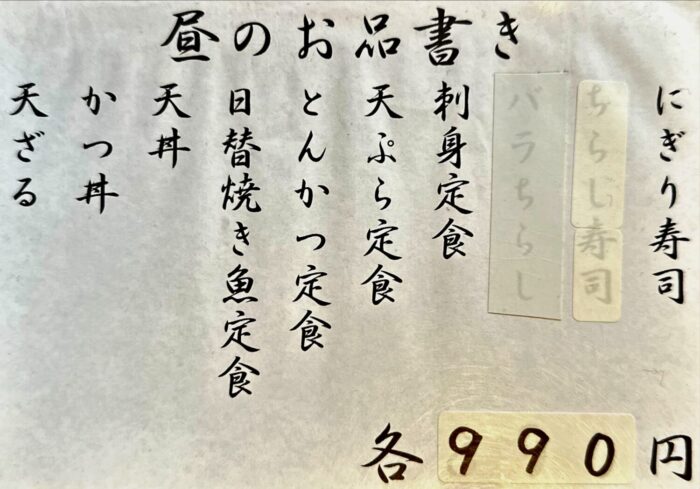 昼のお品書き
にぎり寿司
ちらし寿司
バラちらし
刺身定食
天ぷら定食
とんかつ定食
日替焼き魚定食
天丼
かつ丼
天ざる
各990円